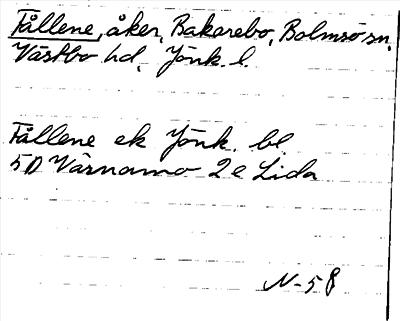 Fållene, åker, Bakarebo, Bolmsö sn,
Västbo hd, Jönk. l.
Fållene ek Jönk. bl
5D Värnamo 2e Lida
N-58